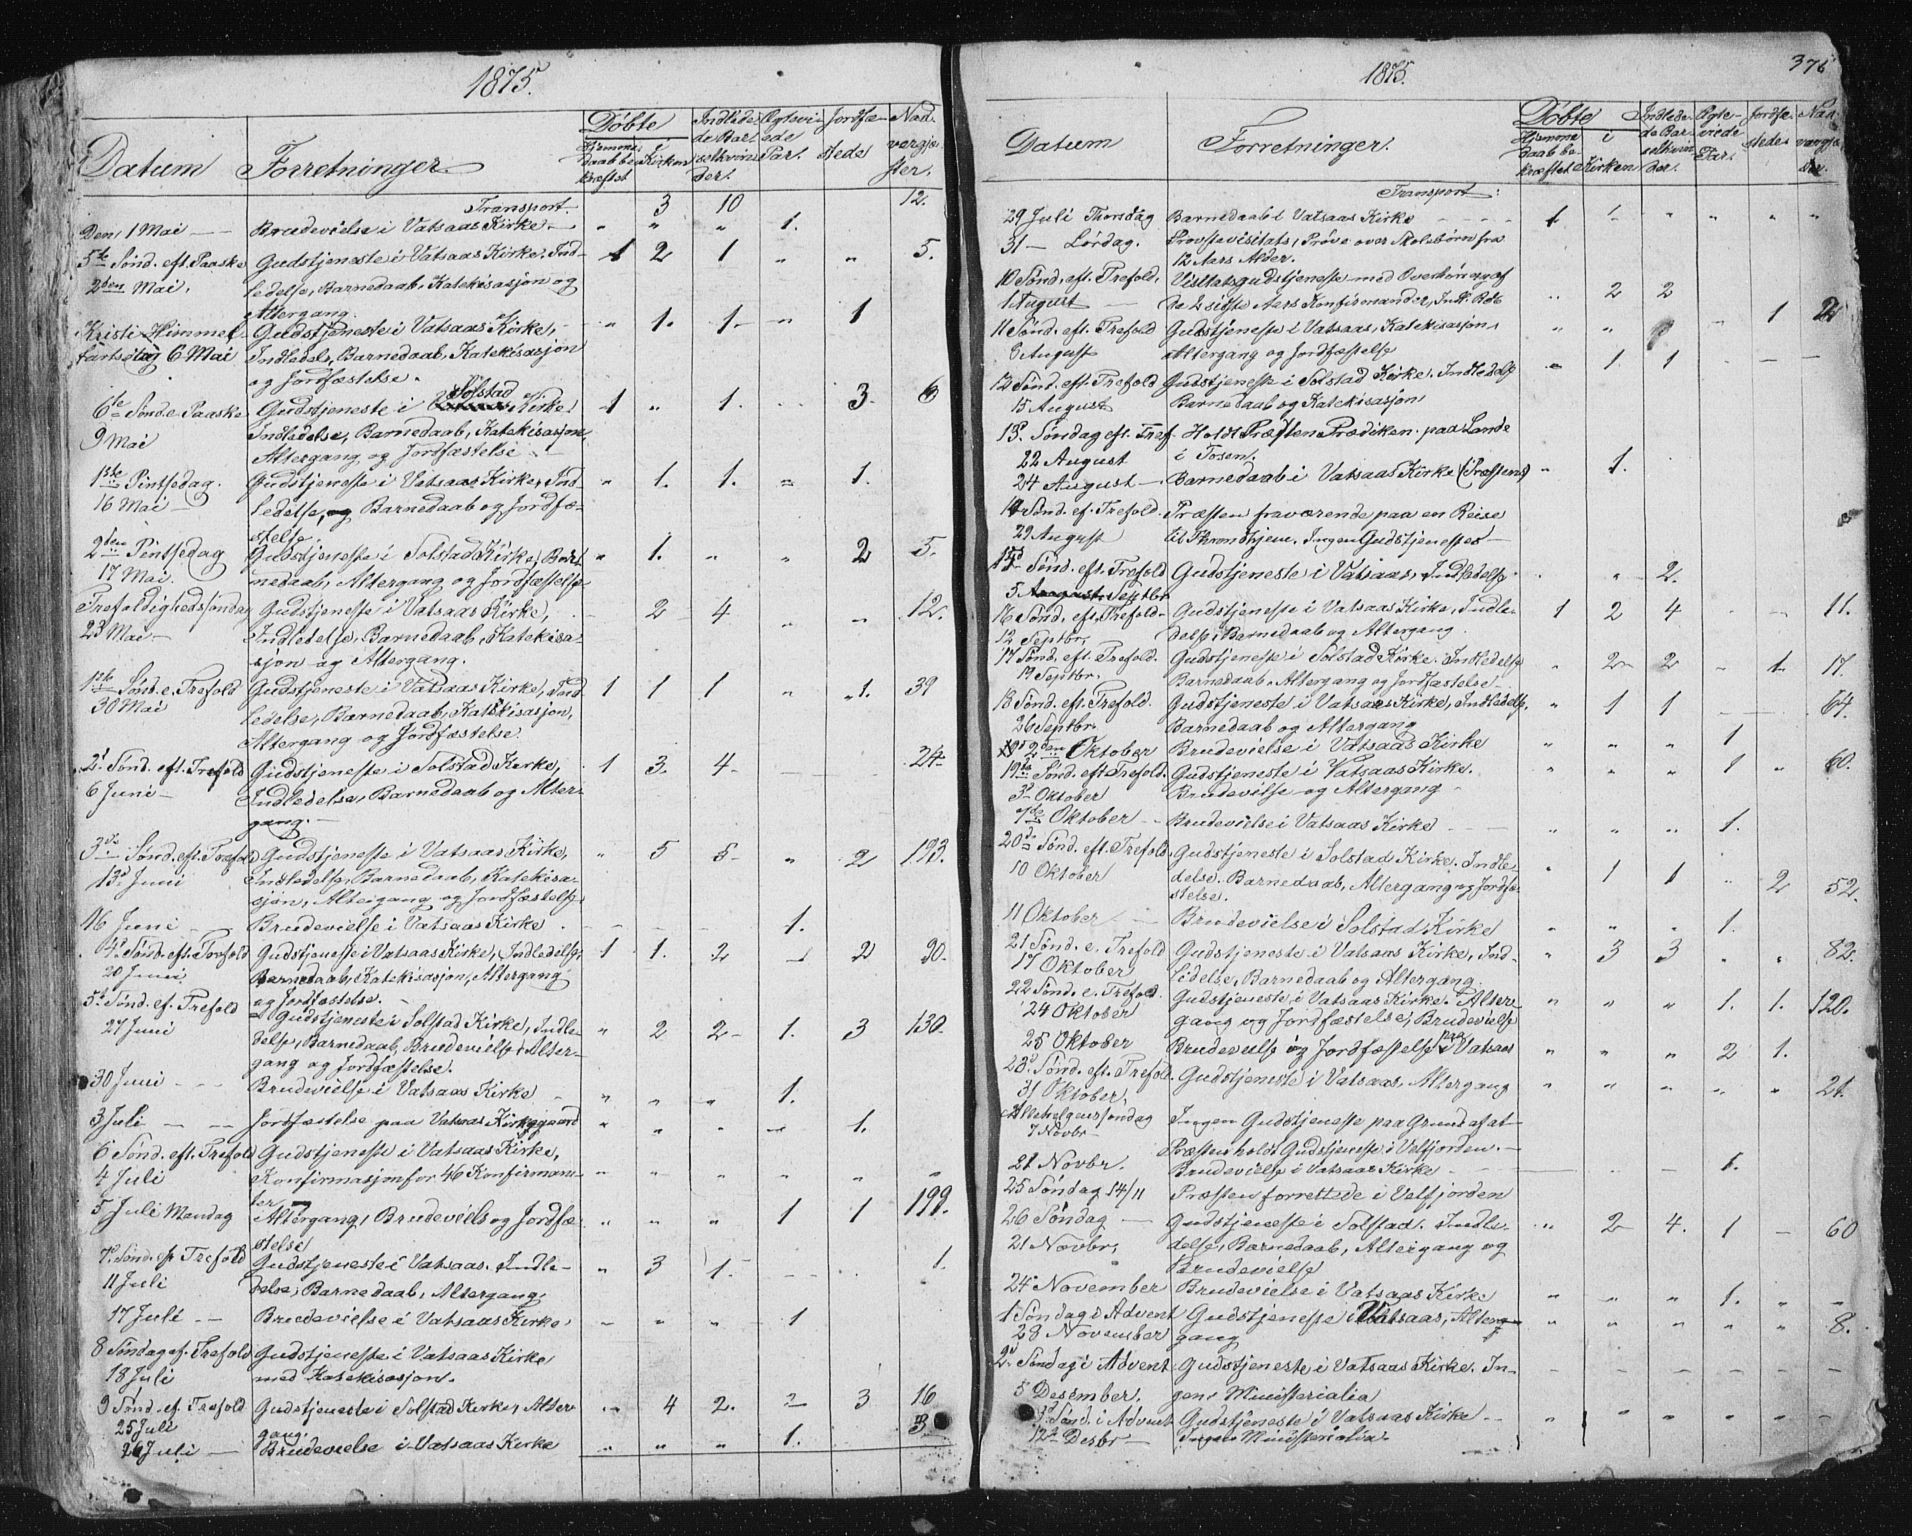 1875.
Datum Forretninger. Døbte Hjemmedaab bekræftet i Kirken Indledede Barselkvinder. Ægteviede Par. Jordfæstede Nadvergjæster.
Transport. 3 10 12.
Den 1 Mai — Brudevielse i Vatsaas Kirke — " " " 1.
5te Sønd. eft. Paaske Gudstjeneste i Vatsaas Kirke. Ind- 1 2 1 " " 5.
2den Mai. ledelse, Barnedaab, Katekisasjon og
Altergang.
Kristi Himmel- Gudstjeneste i Vatsaas Kirke, " 1. 1. " 1
fartsdag 6 Mai Indledels, Barnedaab, Katekisasjon
og Jordfæstelse.
Solstad
6te Sønd. e. Paaske Gudstjeneste i Kirke. 1 " 1. 3. 6
9 Mai Indledelse, Barnedaab, Katekisasjon,
Altergang og Jordfæstelse
1ste Pintsedag. Gudstjeneste i Vatsaas Kirke, Ind- " 1. 1. " 1.
16 Mai — ledelse, og Barnedaab og Jordfæ-
stelse.
2den Pintsedag Gudstjeneste i Solstad Kirke, Bar- " 1. " " 2 5.
17 Mai. nedaab, Altergang og Jordfæstelse
Trefoldighedssøndag Gudstjeneste i Vatsaas Kirke, 2 4 " " 12.
23 Mai — Indledelse, Barnedaab, Katekisa-
sjon og Altergang.
1ste Sønd. e. Trefold Gudstjeneste i Vatsaas Kirke, Ind- 1 1 1 " 1. 39
30 Mai ledelse, Barnedaab, Katekisasjon,
Altergang og Jordfæstelse.
2d Sønd. eft. Trefold Gudstjeneste i Solstad Kirke, 1 3. 4 — — 24.
6 Juni — Indledelse, Barnedaab og Alter-
gang. —
3de Sønd. eft. Trefold Gudstjeneste i Vatsaas Kirke, " 5 5 " 2 193.
13d Juni Indledelse, Barnedaab, Katekisa-
sjon, Altergang og Jordfæstelse
16 Juni — Brudevielse i Vatsaas Kirke — — — 1.
4d Sønd. eft. Trefold Gudstjeneste i Vatsaas Kirke, Indledelse, 1 1. 2 2 90.
20 Juni Barnedaab, Katekisasjon, Altergang
og Jordfæstelse.
5te Sønd. ef. Trefold Gudstjeneste i Solstad Kirke, Indle- " 2 2 1. 3 130.
27 Juni delse, Barnedaab, Brudevielse, Alter-
gang og Jordfæstelse.
30 Juni — Brudevielse i Vatsaas Kirke — " " " 1.
3 Juli — — Jordfæstelse paa Vatsaas Kirkegaard " " " 1.
6 Sønd. eft. Trefold Gudstjeneste i Vatsaas Kirke,
4 Juli Konfirmasjon for 46 Konfirman- " " " " " "
ter —
5 Juli Mandag Altergang, Brudeviels og Jordfæ- " " " 1 1 199.
stelse
7d Sønd. ef Trefold Gudstjeneste i Vatsaas. Indle- " 3 1. — 1.
11 Juli delse, Barnedaab, Altergang.
17 Juli — Brudevielse i Vatsaas Kirke. — " " 1
8 Søndag ef. Trefold Gudstjeneste i Vatsaas Kirke
18 Juli med Katekisasjon.
9 Sønd. ef. Trefold Gudstjeneste i Solstad Kirke, Alter 4 2. 2 3 16
25 Juli gang.
26 Juli — Brudevielse i Vatsaas Kirke " " " 1. 3
1875.
376
Datum Forretninger. Døbte Hjemmedaab bekræftet i Kirken Indledede Barselkvinder. Ægteviede Par. Jordfæstede. Nadvergjæster.
Transport:
29 Juli Thorsdag Barnedaab i Vatsaas Kirke — 1 1 " " " "
31 — Lørdag. Provstevisitats, Prøve over Skolebørn fra
12 Aars Alder.
10 Sønd. eft. Trefold. Visitatsgudstjeneste med Overhøring af
1. August — De 2 sidste Aars Konfirmander, Indl. " 2 2
11 Sønd. eft. Trefold Gudstjeneste i Vatsaas, Katekisasjon " " 1
8 August Altergang og Jordfæstelse
12 Sønd. eft. Trefold Gudstjeneste i Solstad Kirke. Indledelse " 1. 1 — — —
15 August Barnedaab og Katekisasjon
13d Søndag eft. Tref. Holdt Præsten Prædiken paa Lande
22 August i Tosen.
24 August — Barnedaab i Vatsaas Kirke (Præstens) " 1.
14 Sønd. ef. Trefold. Præsten fraværende paa en Reise
29 August til Throndhjem. Ingen Gudstjeneste —
15d Sønd. eft. Trefold Gudstjeneste i Vatsaas, Indledelse. " 2.
5 August Septbr.
16 Sønd. eft. Trefold Gudstjeneste i Vatsaas Kirke, Indle- 1 2 4 " " 11.
12 Septbr. delse, Barnedaab og Altergang.
17 Sønd. eft. Trefold. Gudstjeneste i Solstad Kirke. Indledelse " 2 2 " 1. 17.
19 Septbr. Barnedaab, Altergang og Jordfæstelse —
18 Sønd. eft. Trefold. Gudstjeneste i Vatsaas Kirke, Indledelse, " 1 1 — — 64.
26 Septbr. Barnedaab og Altergang
2den Oktober Brudevielse i Vatsaas Kirke " " " 1
19te Sønd. eft. Trefold. Gudstjeneste i Vatsaas Kirke. " " " 1 " 60.
3d Oktober Brudevielse og Altergang —
7de Oktober — Brudevielse i Vatsaas Kirke — " " " 1.
20d Sønd. eft. Trefold. Gudstjeneste i Solstad Kirke. Indle-
10 Oktober delse, Barnedaab, Altergang og Jordfæ- " 1 1 " 2 52.
stelse.
11 Oktober — Brudevielse i Solstad Kirke " " " 1.
21 Sønd. e. Trefold Gudstjeneste i Vatsaas Kirke, Ind- " 3 3 " " 82.
17 Oktober ledelse, Barnedaab og Altergang
22 Sønd. e. Trefold. Gudstjeneste i Vatsaas Kirke. Alter- " " " 1. 1. 120.
24 Oktober gang og Jordfæstelse, Brudevielse
25 Oktober Brudevielse og Jordfæstelse paa Vatsaas " " " 2 1.
23d Sønd. eft. Trefold. Gudstjeneste i Vatsaas, Altergang " " " " " 21.
31 Oktober,
Allehelgenssøndag Ingen Gudstjeneste paa Grund af at
7 Novbr — Præsten holdt Gudstjeneste i Velfjorden. —
21 Novbr. Brudevielse i Vatsaas Kirke — 1.
25 Søndag 14/11 Præsten forrettede i Velfjorden
26 Søndag — Gudstjeneste i Solstad. Indle- " 2 4. 1 — 60
21 Novbr, delse, Barnedaab, Altergang og
Brudevielse
24 November Brudevielse i Vatsaas Kirke " " " 1. " "
1 Søndag i Advent Gudstjeneste i Vatsaas, Alter- " " " " " 8.
28 November gang
2d Søndag i Advent Gudstjeneste i Vatsaas Kirke. In- — — — — — —
5 Desember. gen Ministerialia
3d Sønd. i Advent Gudstjeneste i Vatsaas Kirke — " " " " " "
12te Desbr — Ingen Ministerialia.